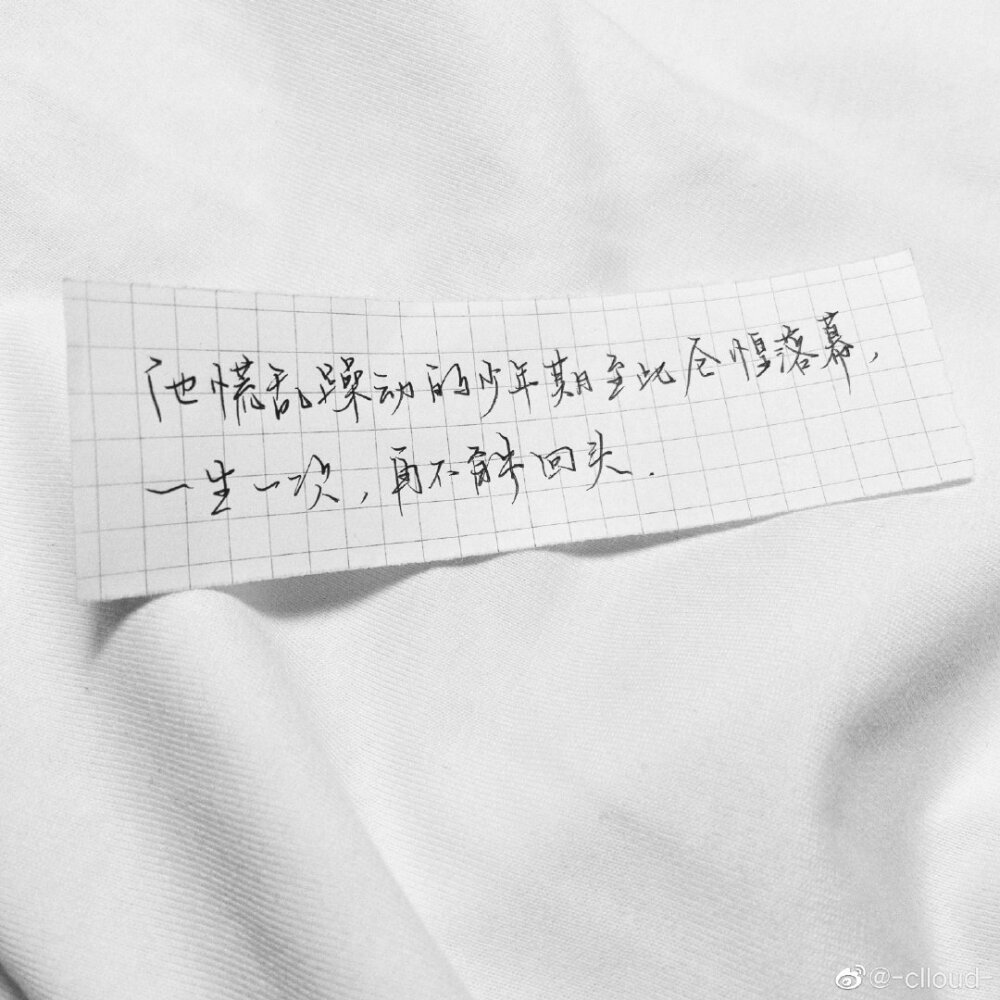 他慌乱躁动的少年期至此仓惶落幕，
一生一次，再不能回头.
@-clloud-